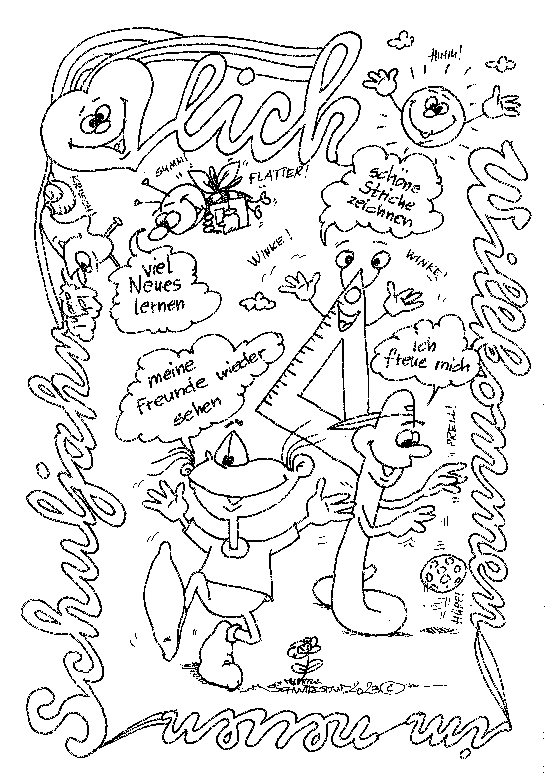 lich
Willkommen
im neuen
Schuljahr
HIHIHI!
SUMM!
FLATTER!
schöne
Striche
zeichnen
WINKE!
WINKE!
viel
Neues
lernen
ich
freue mich
meine
Freunde wieder
sehen
PRELL!
HÜPF!